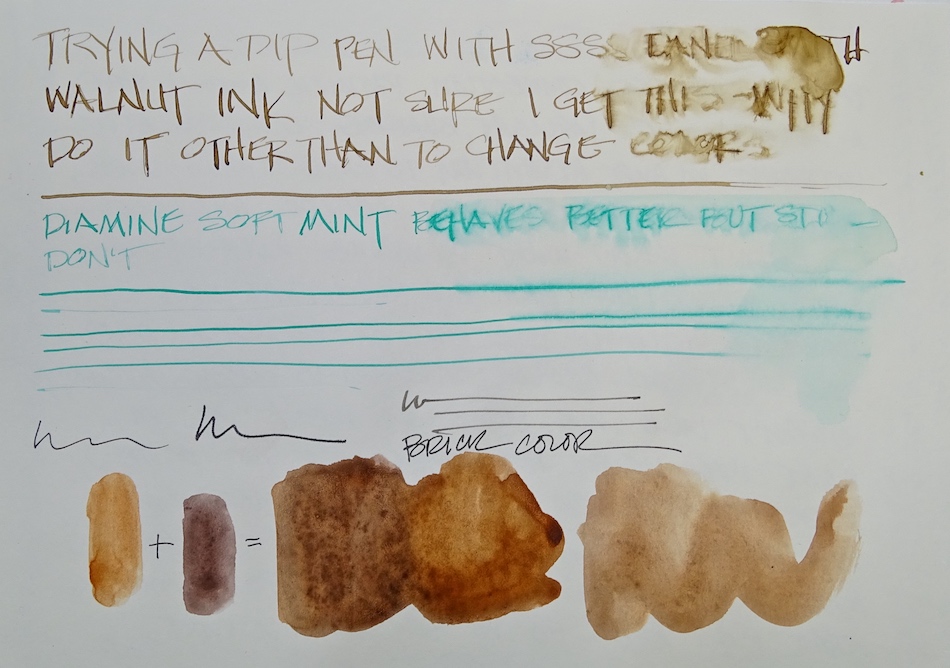 TRYING A DIP PEN WITH
WALNUT INK NOT SURE I GET THIS WHY
DO IT OTHER THAN TO CHANGE COLORS
DIAMINE SOFT MINT BEHAVES BETTER BUT STILL
DON'T
BRICK COLOR
+ =